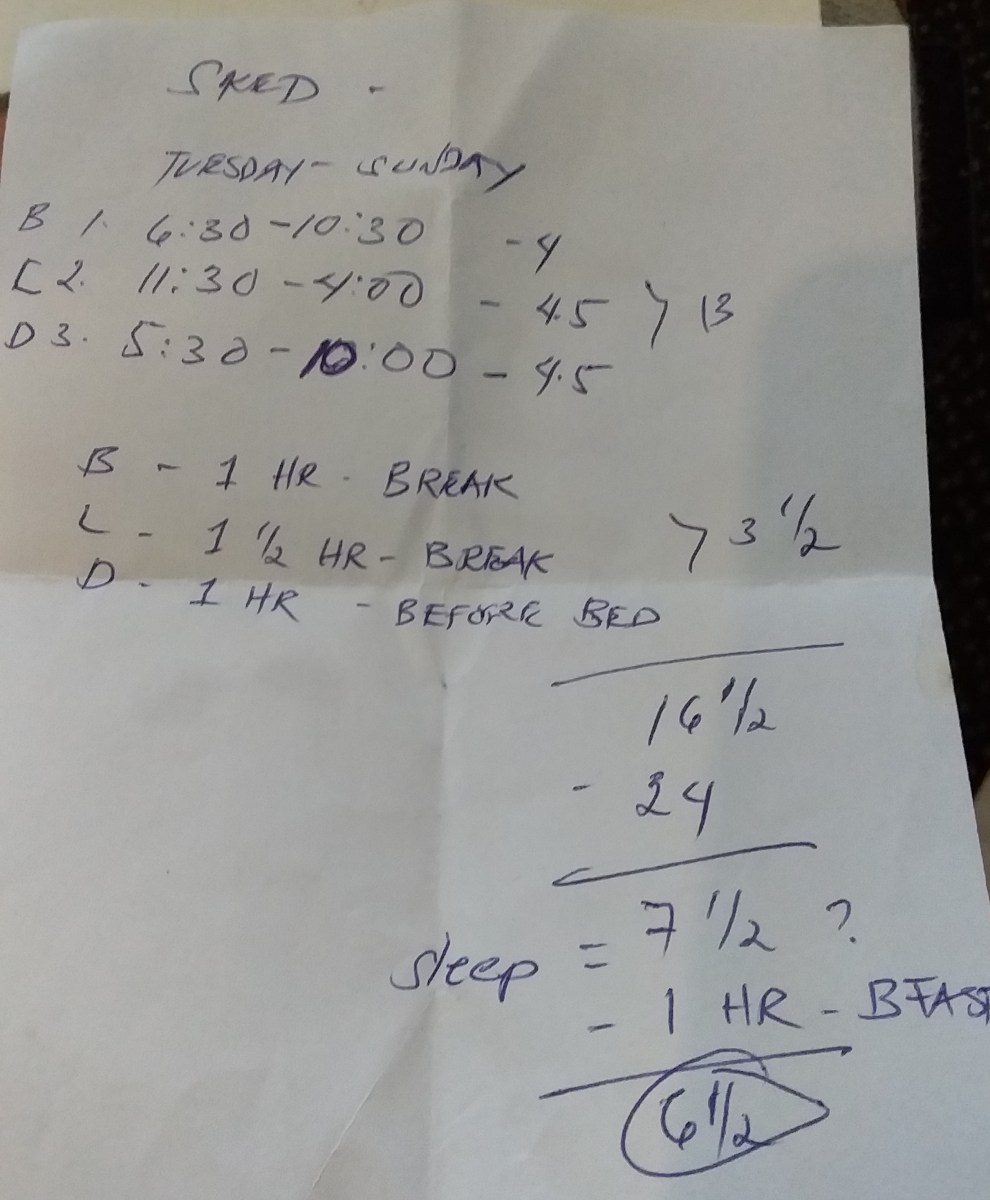 SKED -
TUESDAY - SUNDAY
B 1. 6:30 - 10:30 - 4
L 2. 11:30 - 4:00 - 4.5 > 13
D 3. 5:30 - 10:00 - 4.5
B - 1 HR - BREAK
L - 1 1/2 HR - BREAK > 3 1/2
D - 1 HR - BEFORE BED
16 1/2
- 24
Sleep = 7 1/2 ?
- 1 HR - BFAST
6 1/2